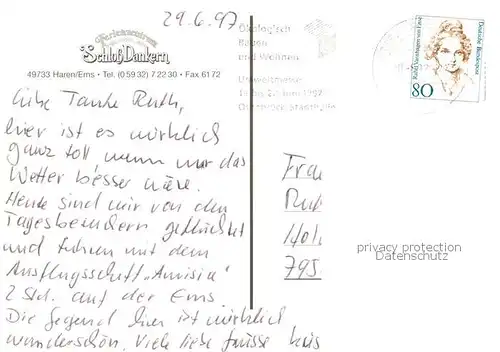 29.6.97
Ferienzentrum
Schloß Dankern
49733 Haren/Ems • Tel. (0 59 32) 7 22 30 • Fax 61 72
Ökologisch
Bauen
und Wohnen
Deutsche Bundespost
80
Liebe Tante Ruth,
hier ist es wirklich
ganz toll, wenn nur das
Wetter besser wäre.
Heute sind wir von den
Tagesbesuchern geflüchtet
und fuhren mit dem
Ausflugsschiff „Amisia"
2 Std. auf der Ems.
Die Gegend hier ist wirklich
wunderschön. Viele liebe Grüsse
Frau
795
privacy protection
Datenschutz